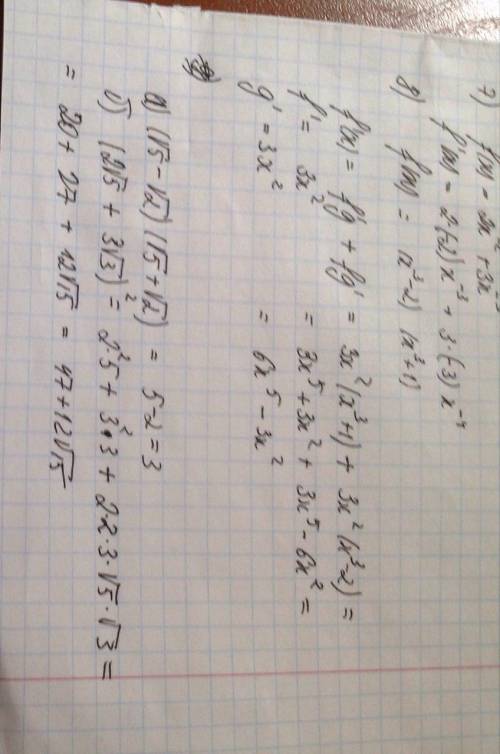 7) f(x) = 2x⁻² + 3x⁻³
f'(x) = 2·(-2)x⁻³ + 3·(-3)x⁻⁴
8) f(x) = (x³-2)(x³+1)
f'(x) = f'g + fg' = 3x²(x³+1) + 3x²(x³-2) =
f' = 3x² = 3x⁵+3x² + 3x⁵-6x² =
g' = 3x² = 6x⁵-3x²
а) (√5-√2)(√5+√2) = 5-2=3
б) (2√5 + 3√3)² = 2²·5 + 3²·3 + 2·2·3·√5·√3 =
= 20 + 27 + 12√15 = 47+12√15